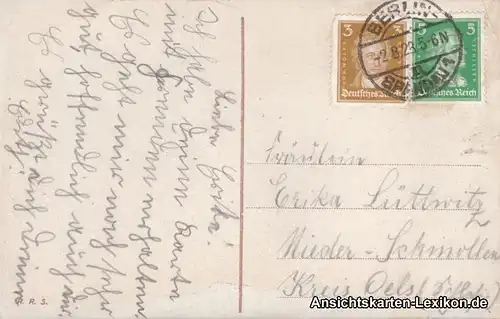 Liebe Erika!
Ich habe deine Karte
mit Freuden erhalten
Es geht mir noch sehr
gut, hoffendlich auch dir.
Es grüßt dich deine
R. R. S.
3 3
Deutsches Reich
5
Deutsches Reich
BERLIN
-2.8.28.5-6N
Fräulein
Erika Lüttwitz
Nieder-Schmollen
Kreis Oels
Ansichtskarten-Lexikon.de